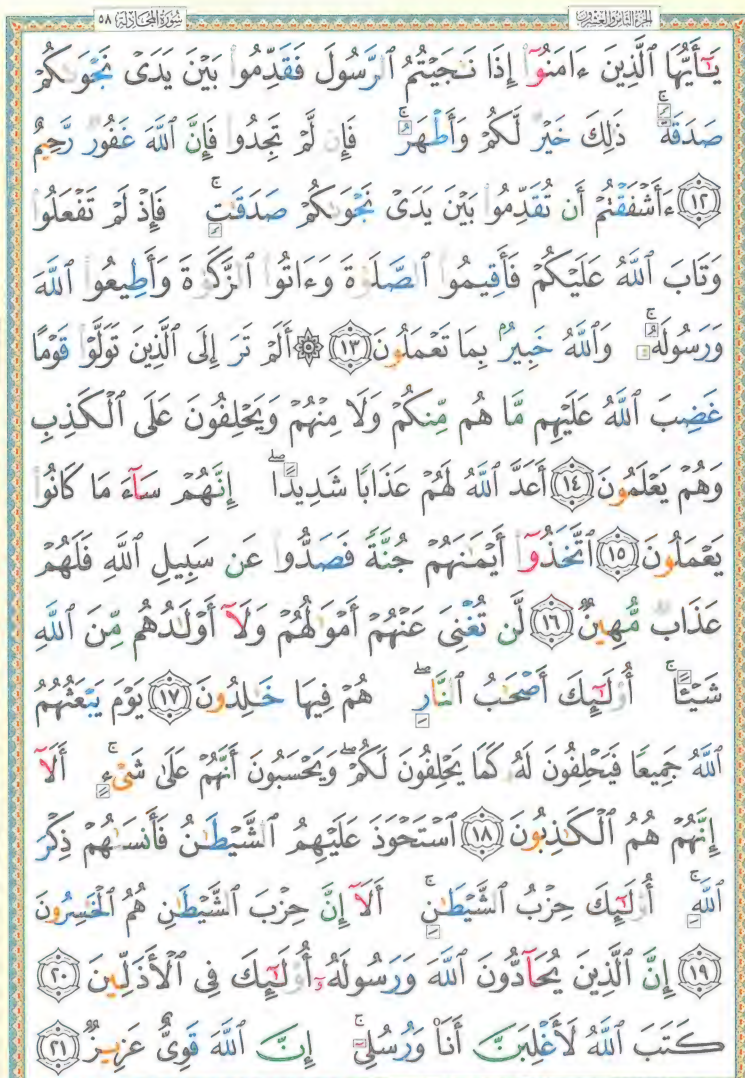 سُورَةُ المُجَادلَة ٥٨ الجزء الثامن والعشرون
يَٰٓأَيُّهَا ٱلَّذِينَ ءَامَنُوٓا۟ إِذَا نَٰجَيْتُمُ ٱلرَّسُولَ فَقَدِّمُوا۟ بَيْنَ يَدَىْ نَجْوَىٰكُمْ
صَدَقَةً ۚ ذَٰلِكَ خَيْرٌ لَّكُمْ وَأَطْهَرُ ۚ فَإِن لَّمْ تَجِدُوا۟ فَإِنَّ ٱللَّهَ غَفُورٌ رَّحِيمٌ
١٢ ءَأَشْفَقْتُمْ أَن تُقَدِّمُوا۟ بَيْنَ يَدَىْ نَجْوَىٰكُمْ صَدَقَٰتٍ ۚ فَإِذْ لَمْ تَفْعَلُوا۟
وَتَابَ ٱللَّهُ عَلَيْكُمْ فَأَقِيمُوا۟ ٱلصَّلَوٰةَ وَءَاتُوا۟ ٱلزَّكَوٰةَ وَأَطِيعُوا۟ ٱللَّهَ
وَرَسُولَهُۥ ۚ وَٱللَّهُ خَبِيرٌۢ بِمَا تَعْمَلُونَ ١٣ ۞ أَلَمْ تَرَ إِلَى ٱلَّذِينَ تَوَلَّوْا۟ قَوْمًا
غَضِبَ ٱللَّهُ عَلَيْهِم مَّا هُم مِّنكُمْ وَلَا مِنْهُمْ وَيَحْلِفُونَ عَلَى ٱلْكَذِبِ
وَهُمْ يَعْلَمُونَ ١٤ أَعَدَّ ٱللَّهُ لَهُمْ عَذَابًا شَدِيدًا ۖ إِنَّهُمْ سَآءَ مَا كَانُوا۟
يَعْمَلُونَ ١٥ ٱتَّخَذُوٓا۟ أَيْمَٰنَهُمْ جُنَّةً فَصَدُّوا۟ عَن سَبِيلِ ٱللَّهِ فَلَهُمْ
عَذَابٌ مُّهِينٌ ١٦ لَّن تُغْنِىَ عَنْهُمْ أَمْوَٰلُهُمْ وَلَآ أَوْلَٰدُهُم مِّنَ ٱللَّهِ
شَيْـًٔا ۚ أُو۟لَٰٓئِكَ أَصْحَٰبُ ٱلنَّارِ ۖ هُمْ فِيهَا خَٰلِدُونَ ١٧ يَوْمَ يَبْعَثُهُمُ
ٱللَّهُ جَمِيعًا فَيَحْلِفُونَ لَهُۥ كَمَا يَحْلِفُونَ لَكُمْ ۖ وَيَحْسَبُونَ أَنَّهُمْ عَلَىٰ شَىْءٍ ۚ أَلَآ
إِنَّهُمْ هُمُ ٱلْكَٰذِبُونَ ١٨ ٱسْتَحْوَذَ عَلَيْهِمُ ٱلشَّيْطَٰنُ فَأَنسَىٰهُمْ ذِكْرَ
ٱللَّهِ ۚ أُو۟لَٰٓئِكَ حِزْبُ ٱلشَّيْطَٰنِ ۚ أَلَآ إِنَّ حِزْبَ ٱلشَّيْطَٰنِ هُمُ ٱلْخَٰسِرُونَ
١٩ إِنَّ ٱلَّذِينَ يُحَآدُّونَ ٱللَّهَ وَرَسُولَهُۥٓ أُو۟لَٰٓئِكَ فِى ٱلْأَذَلِّينَ ٢٠
كَتَبَ ٱللَّهُ لَأَغْلِبَنَّ أَنَا۠ وَرُسُلِىٓ ۚ إِنَّ ٱللَّهَ قَوِىٌّ عَزِيزٌ ٢١